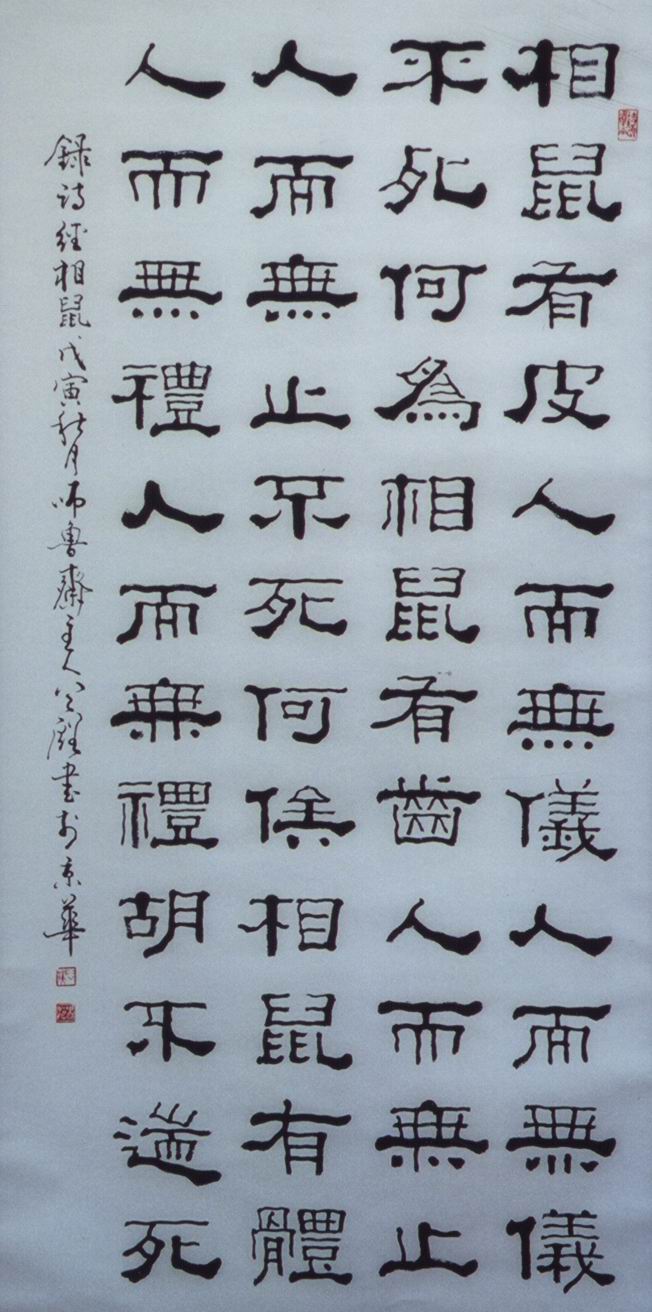 相鼠有皮人而無儀人而無儀
不死何為相鼠有齒人而無止
人而無止不死何俟相鼠有體
人而無禮人而無禮胡不遄死
錄詩經相鼠戊寅秋月師魯齋主人公觀書於京華